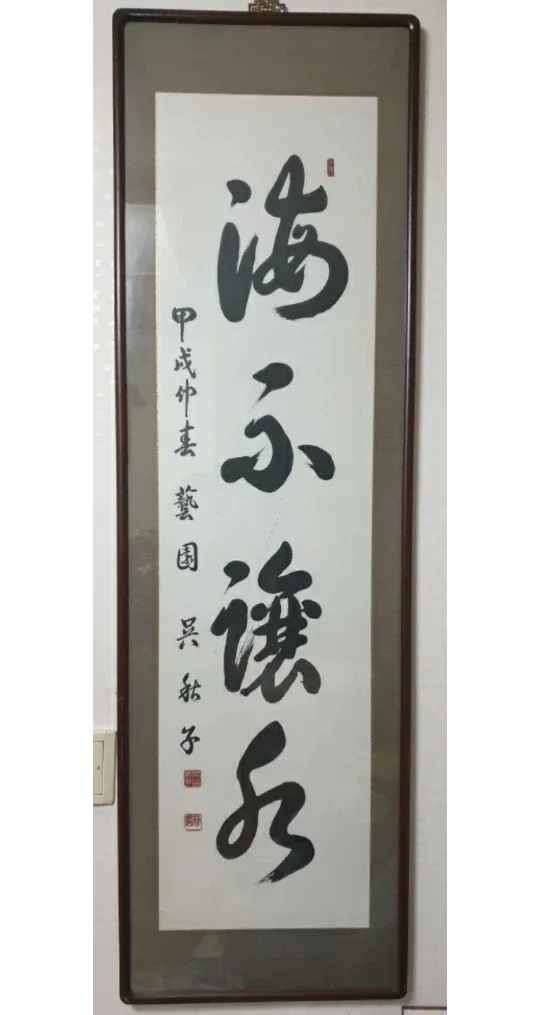 海不讓水
甲戌仲春 藝園 吳秋子